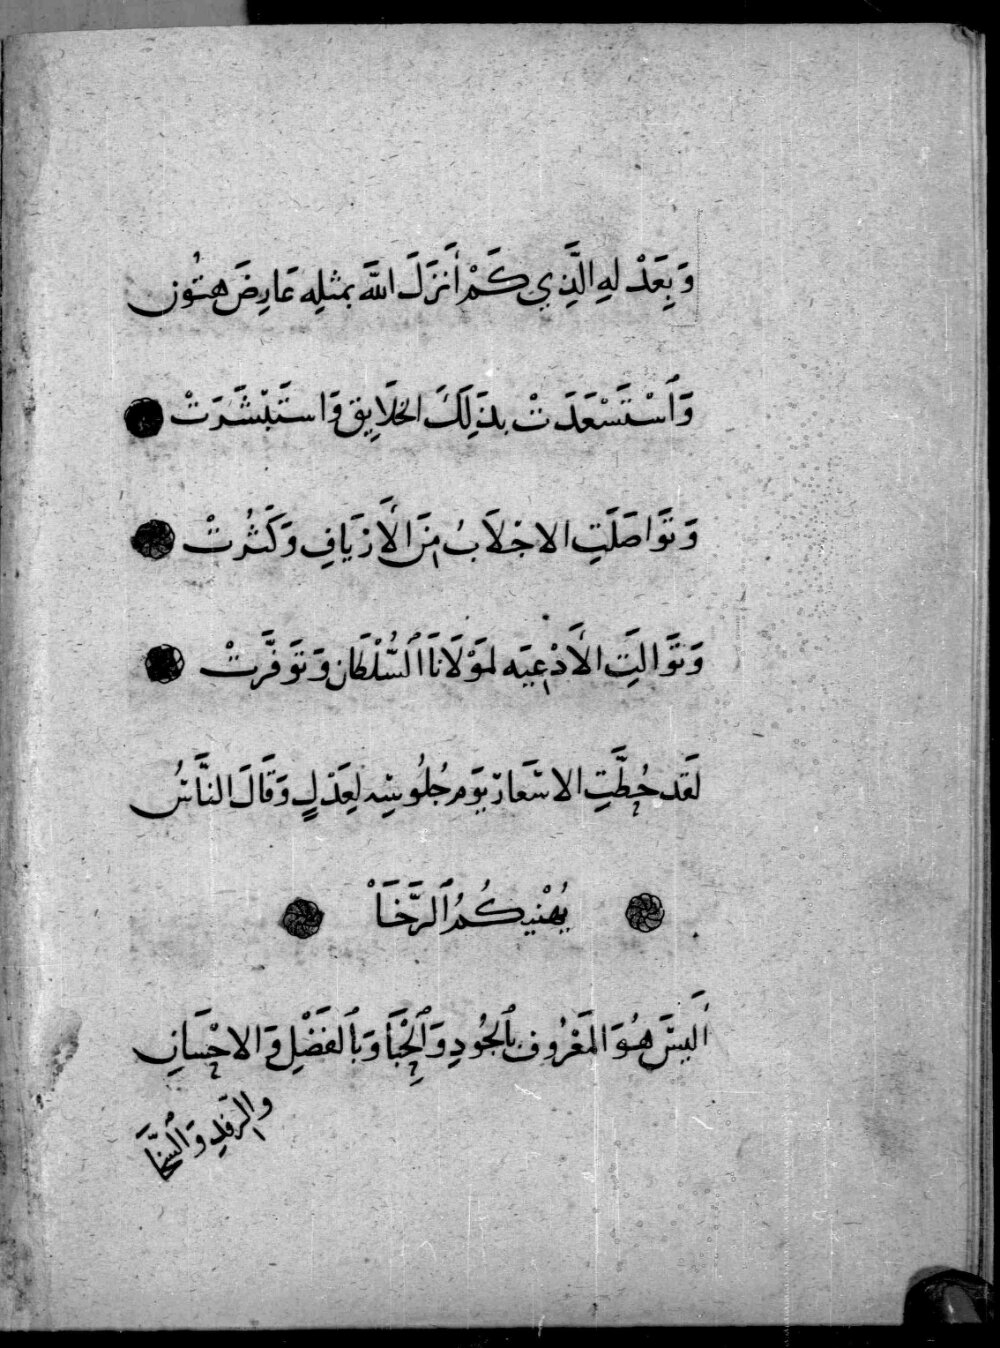 وَبِعَدْلِهِ الَّذِي كَمْ أَنزَلَ اللَّهَ بمثلِهِ عَارِضَ هَتُون
وَٱسْتَسْعَدَتْ بِذَلِكَ الخَلَايِق وَاستَبْشَرَتْ
وَتَوَاصَلَتِ الاجْلَابُ مِنَ الأَزيَافِ وَكَثُرتْ
وَتَوَالَتِ الأَدْعِيَه لمَوْلَانَا ٱلسُّلْطَان وَتَوَفَّرَتْ
لَقَد حُطَّتِ الاسْعَارُ يَوَم جُلُوسِهِ لِعَدْلٍ وَقَالَ النَّاسُ
يُهْنِيكُمُ ٱلرَّخَا
أَلَيسَ هُوَ المَعْرُوف بٱلجُودِ وَٱلحِبَا وَبٱلفَضْلِ وَالاحْسَانِ
والرفدِ وَٱلسَّخَا